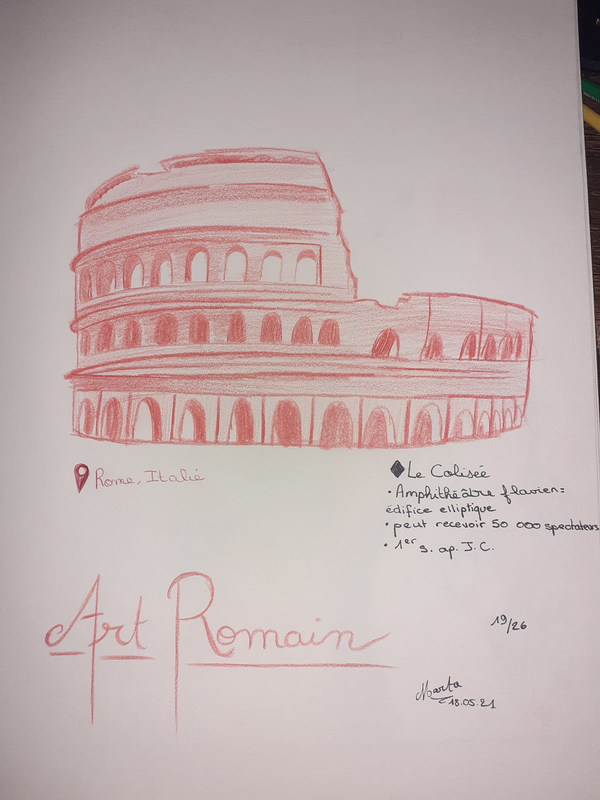 Rome, Italie
Le Colisée
• Amphithéâtre flavien =
édifice elliptique
• peut recevoir 50 000 spectateurs
• 1er s. ap. J.C.
Art Romain
19/26
Marta
18.05.21